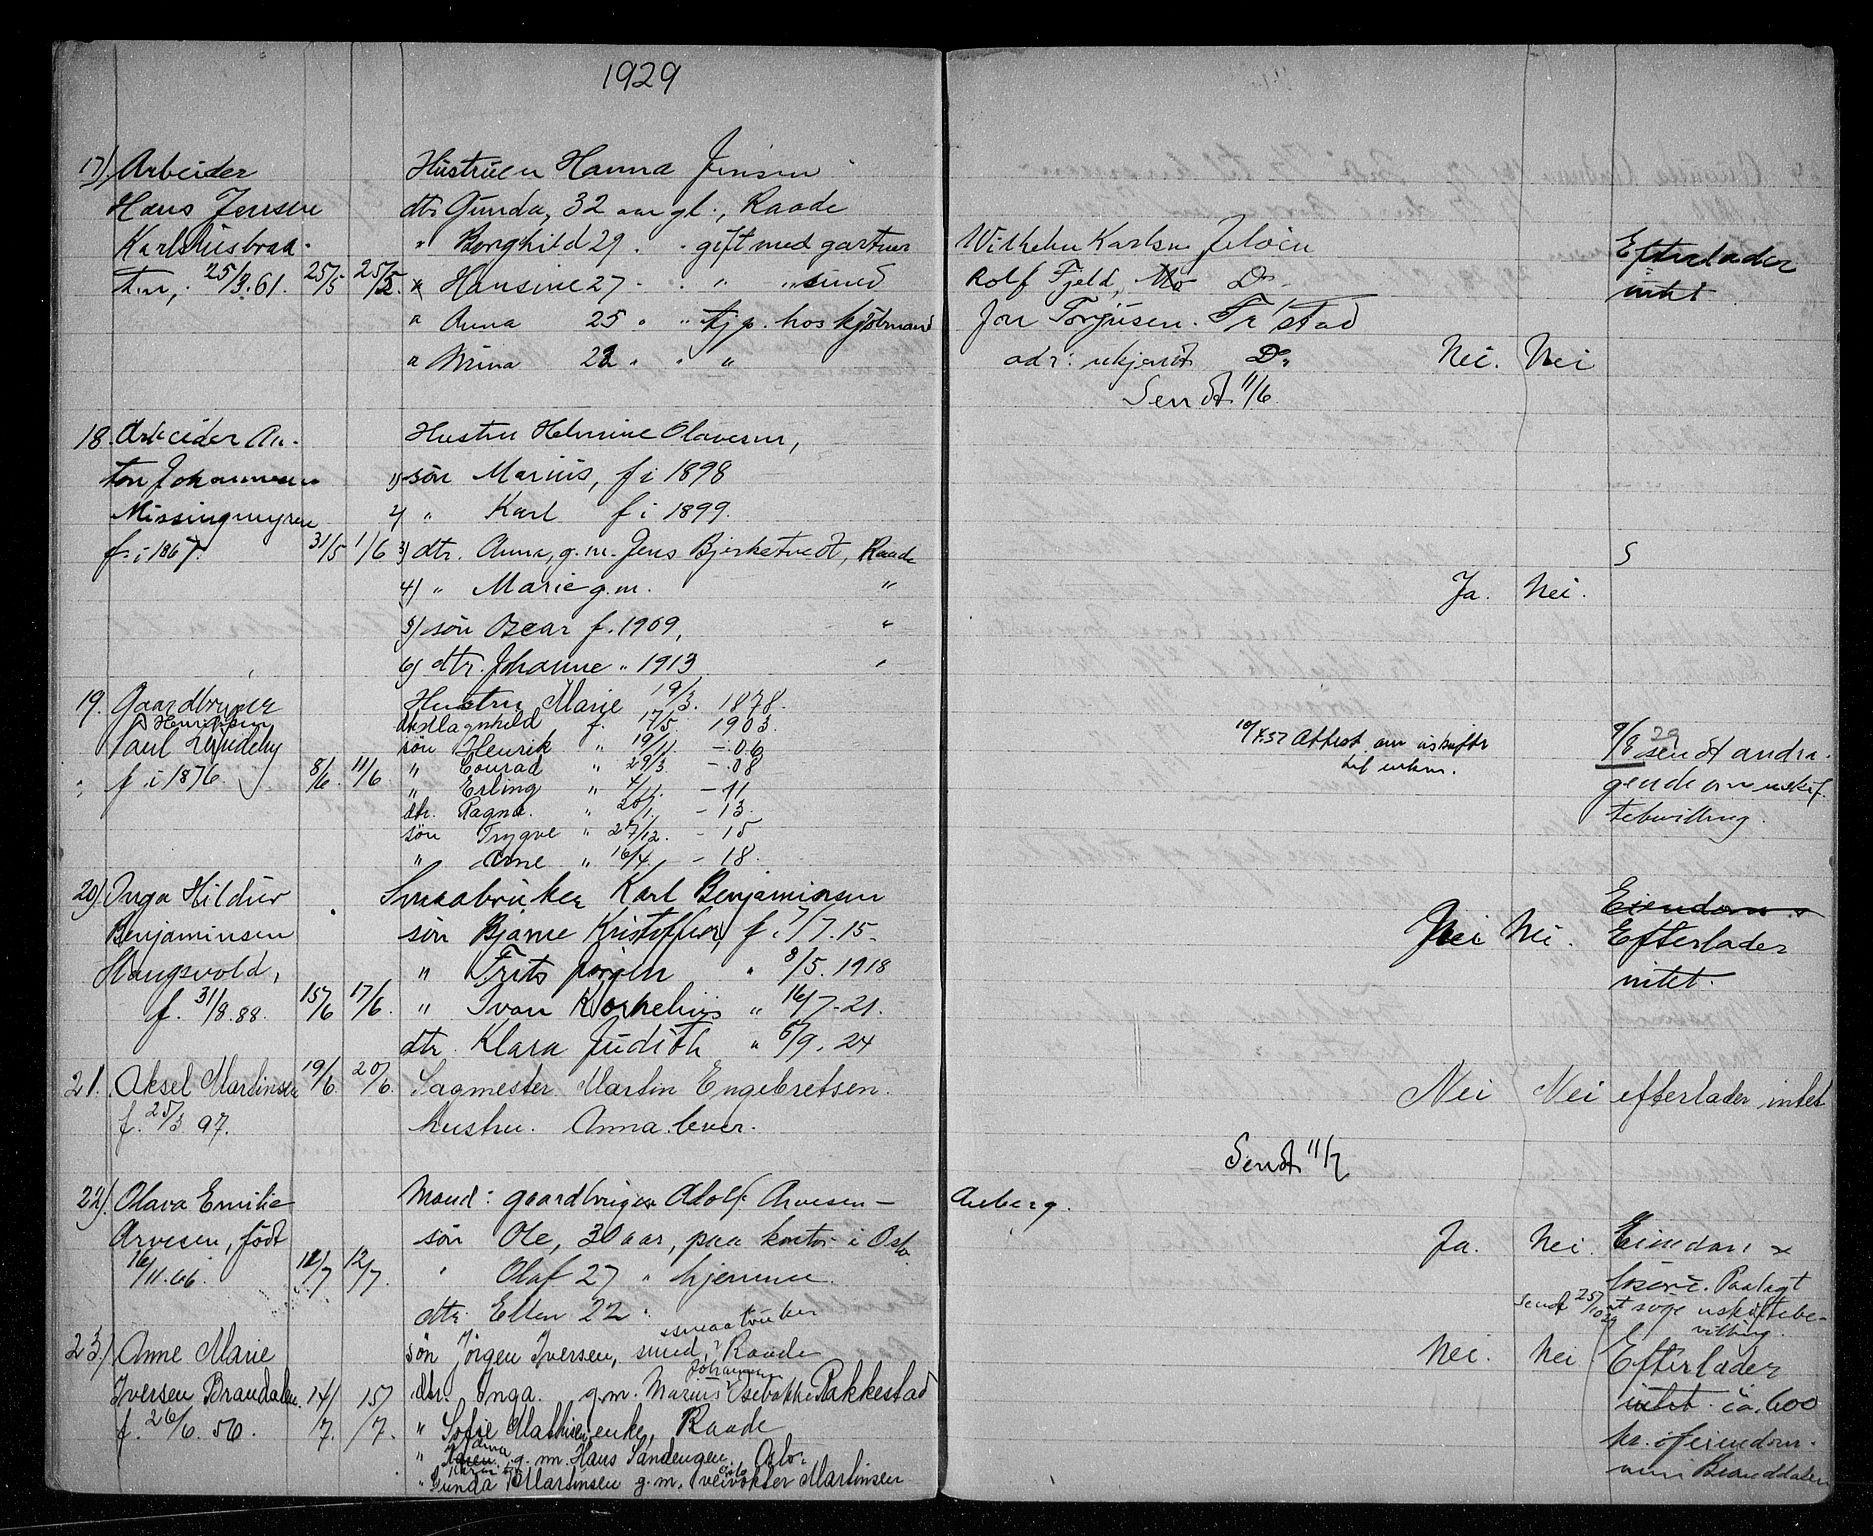 1929
17) Arbeider Hustruen Hanna Jensen
Hans Jensen dtr. Gunda, 32 aar gl., Raade
Karlshusbraa- " Borghild 29 " " gift med gartner Vilhelm Karlsen Jeløen Efterlader
ten, 25/3.61. 25/5 25/5. " Hansine 27 " " smed Rolf Fjeld, Mo D. intet
" Anna 25 " " tj. hos kjøbmand Jon Torgusen. Fr.stad
" Mina 22 " " " adr: ukjendt Do. Nei. Nei
Sendt 11/6.
18. Arbeider An- Hustru Helmine Olavesen,
ton Johannesen 1) søn Marius, f i 1898
Missingmyren 2) " Karl f i 1899.
f. i 1867. 31/5 1/6 3) dtr. Anna, g.m. Jens Bjerketvedt, Raade S
4) " Marie g.m. " Ja. Nei.
5) søn Oscar f. 1909, "
6) dtr. Johanne " 1913 "
19. Gaardbruger Hustru Marie 19/3. 1878.
Henriksen dtr. Ragnhild f. 17/5. 1903.
Paul Lundeby søn Henrik " 19/11 - 06 Attest om uskiftet 9/8 29 sendt andra-
f i 1876. 8/6. 11/6 " Conrad " 29/3. - 08 gende om uskif-
" Erling " 4/11. - 11 tebevilling.
dtr. Ragna. " 20/1. - 13.
søn Trygve " 27/12. - 15
" Arne " 16/4. - 18.
20) Inga Hildur Smaabruker Karl Benjaminsen Eiendom
Benjaminsen søn Bjarne Kristoffer f. 7/7.15. Nei Nei. Efterlader
Haugsvold, " Frits Jørgen " 8/5. 1918 intet.
f. 31/8.88. 15/6 17/6. " Ivan Kornelius " 16/7-21.
dtr. Klara Judith " 6/9. 24
21. Aksel Martinsen 19/6. 20/6. Sagmester Martin Engebretsen. Nei Nei efterlader intet
f. 25/3 97. hustru. Anna. lever.
Sendt 11/7
22). Olava Emilie Mand: gaardbruger Adolf Arvesen - Aaberg.
Arvesen, født søn Ole, 30 aar, paa kontor i Oslo Ja. Nei. Eiendom &
16/11.66. 11/7 12/7. " Olaf 27 " hjemme. løsøre. Paalagt
dtr. Ellen 22 " Sendt 25/10 29 at søge uskiftebe-
smaabruker villing.
23.) Anne Marie søn Jørgen Iversen, smed, Raade Nei. Nei Efterlader
Johannesen
Iversen Brandalen. 14/7. 15/7. dtr. Inga. g.m. Marius Rakkestad intet. ca. 600
f. 26/6. 50. " Sofie Mathisen enke, Raade kr. i eiendom-
" g.m. Hans Sandengen. Oslo. men Branddalen
" Gunda Martinsen g.m. veivokter Martinsen